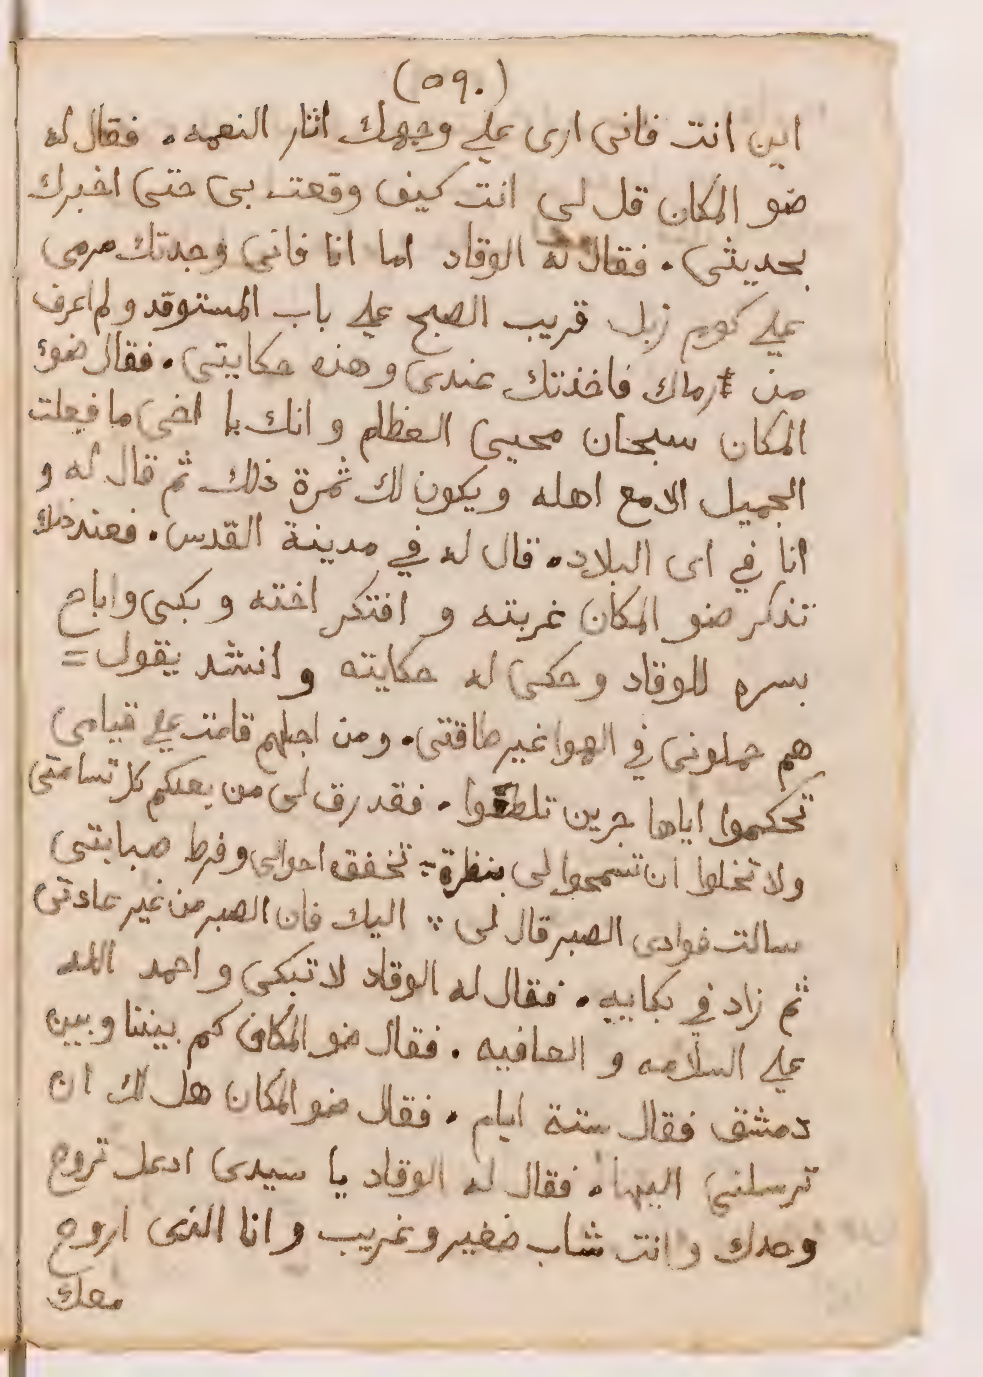 (٥٩٠)
اين انت فاني ارى على وجهك اثار النعمه . فقال له
ضو المكان قل لى انت كيف وقعت بى حتى اخبرك
بحديثي . فقال له الوقاد اما انا فاني وجدتك مرمى
على كوم زبل قريب الصبح على باب المستوقد ولم اعرف
من ارماك فاخذتك عندى وهذه حكايتي . فقال ضوء
المكان سبحان محيى العظام و انك يا اخى ما فعلت
الجميل الا مع اهله و يكون لك ثمرة ذلك ثم قال له و
انا في اى البلاد . قال له في مدينة القدس . فعند ذلك
تذكر ضو المكان غربته و افتكر اخته و بكى واباح
بسره للوقاد وحكى له حكايته و انشد يقول =
هم حملونى في الهوا غير طاقتى . ومن اجلهم قامت على قيامى
تحكموا اياها جرين تلطفوا . فقد رق لى من بعدكم كل
ولا تبخلوا ان تسمحوا لى بنظرة = تخفف احوالى وفرط صبابتى
سالت فوادى الصبر قال لى : اليك فان الصبر من غير عادتى
ثم زاد في بكاييه . فقال له الوقاد لا تبكى و احمد الله
على السلامه و العافيه . فقال ضو المكان كم بيننا وبين
دمشق فقال ستة ايام . فقال ضو المكان هل لك ان
ترسلنى اليها . فقال له الوقاد يا سيدى ادعك تروح
وحدك وانت شاب صغير وغريب و انا الذى اروح
معك